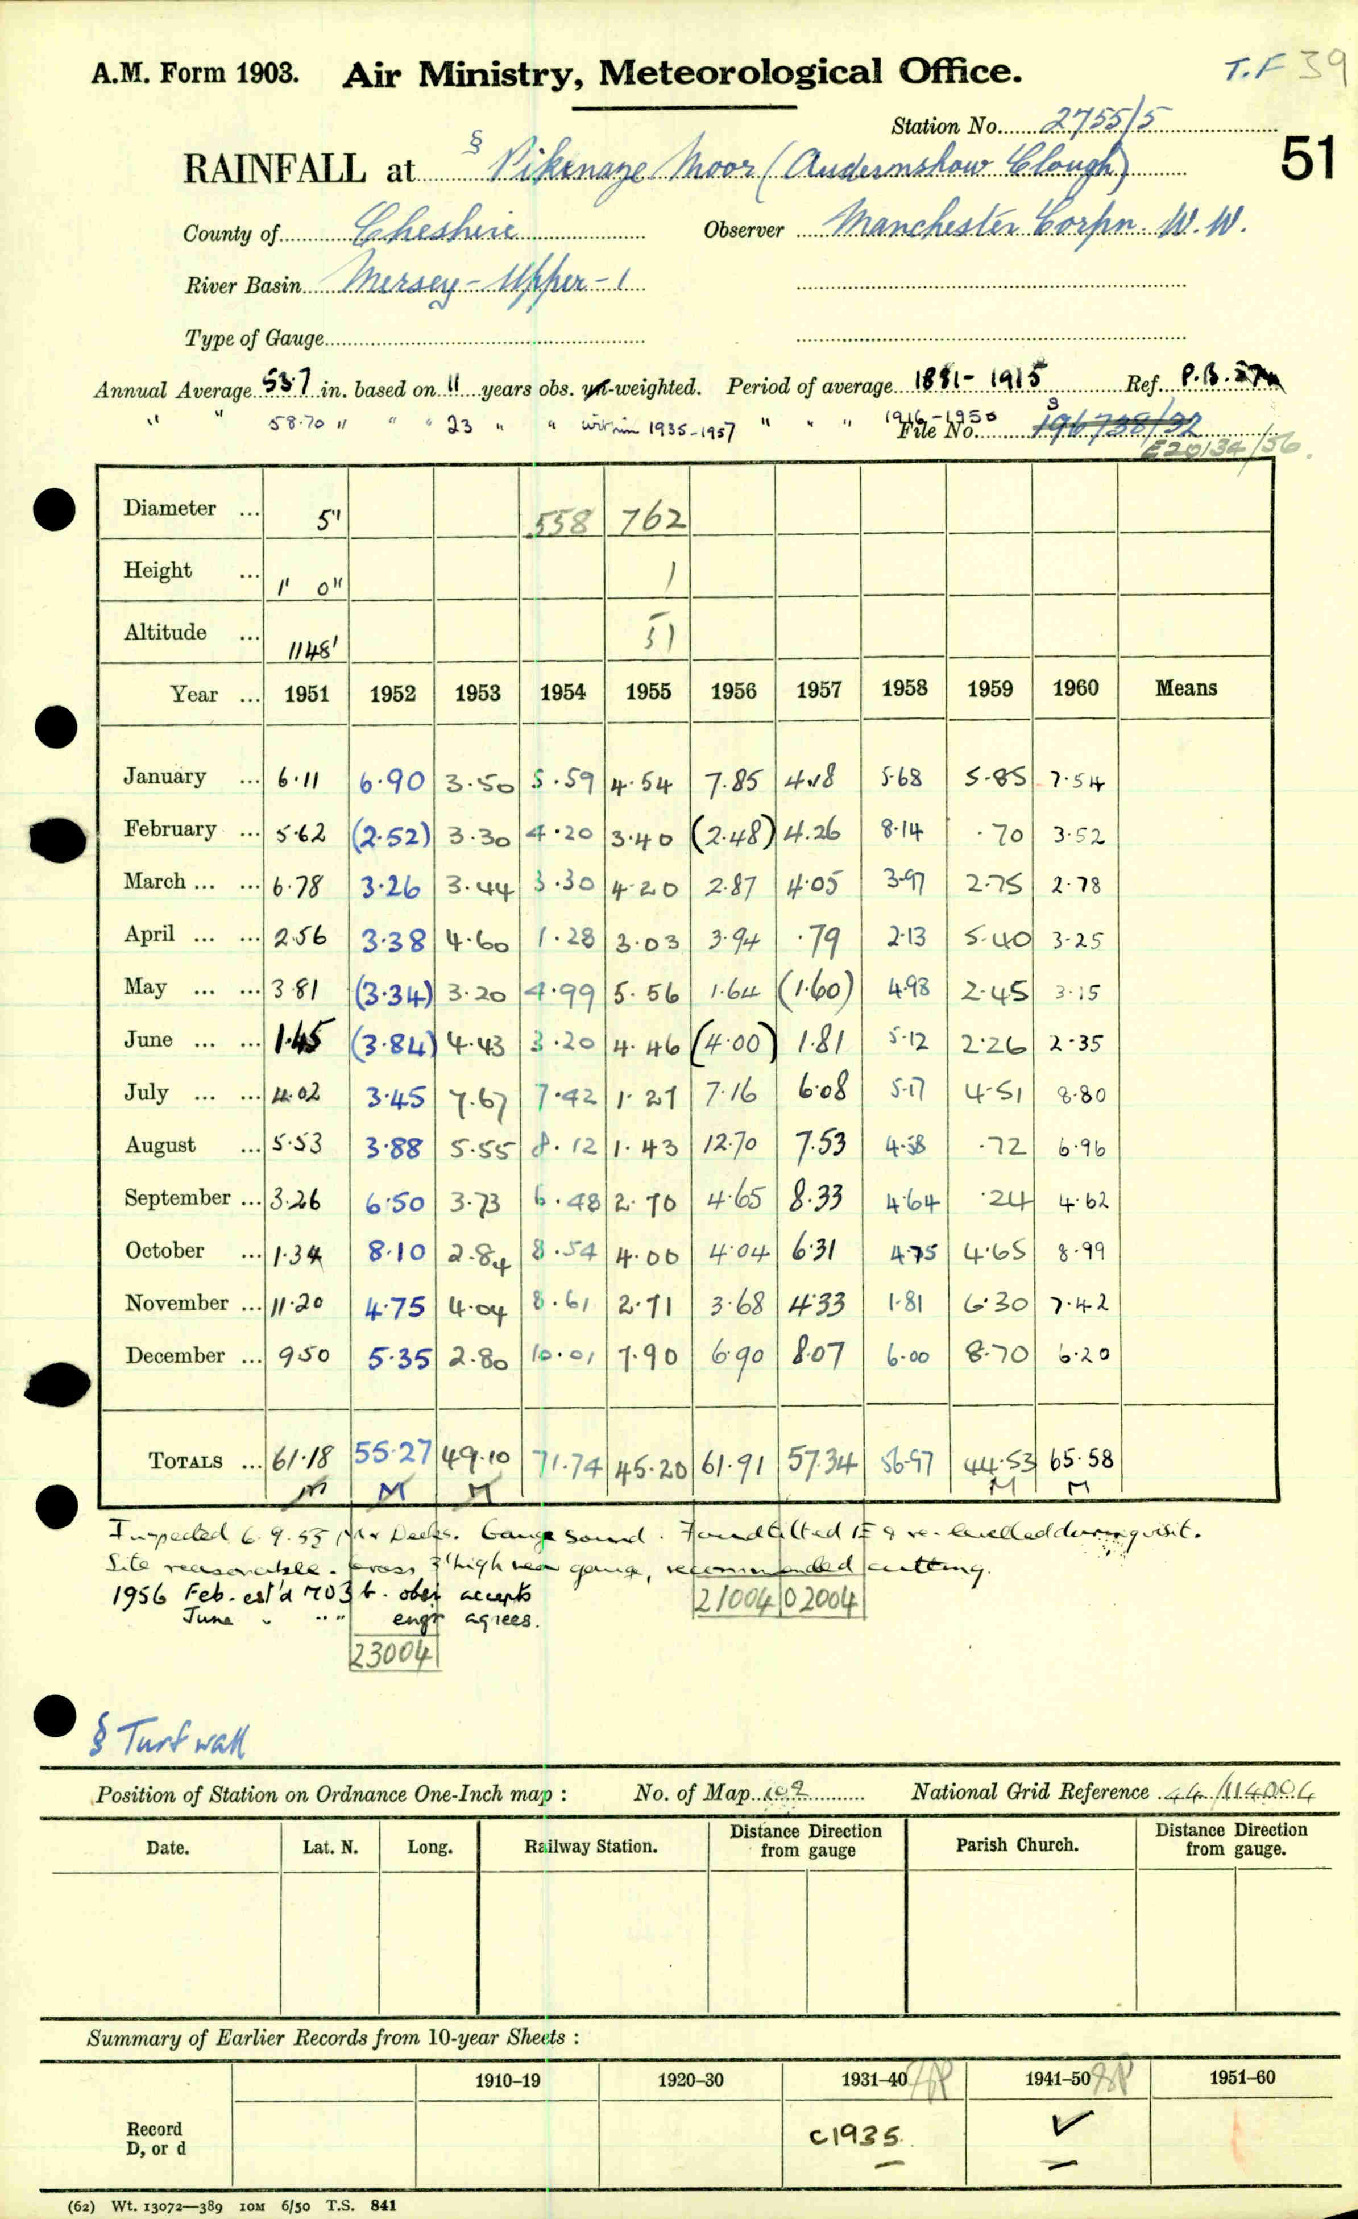 A.M. Form 1903. Air Ministry, Meteorological Office. T.F 39
Station No. 2755/5
51
RAINFALL at § Pikenaze Moor (Audernshaw Clough)
County of Cheshire Observer Manchester Corpn. W.W.
River Basin Mersey - Upper - 1
Type of Gauge
Annual Average 53.7 in. based on 11 years obs. un-weighted. Period of average 1881-1915 Ref. P.B.
" " 58.70 " " " 23 " " within 1935-1957 " " " 1916-1950 File No. 196738/32
E20134/56.
Diameter ... 5" 558 762
Height ... 1' 0" 1
Altitude ... 1148' 51
Year ... 1951 1952 1953 1954 1955 1956 1957 1958 1959 1960 Means
January ... 6.11 6.90 3.50 5.59 4.54 7.85 4.18 5.68 5.85 7.54
February ... 5.62 (2.52) 3.30 4.20 3.40 (2.48) 4.26 8.14 .70 3.52
March ... ... 6.78 3.26 3.44 3.30 4.20 2.87 4.05 3.97 2.75 2.78
April ... ... 2.56 3.38 4.60 1.28 3.03 3.94 .79 2.13 5.40 3.25
May ... ... 3.81 (3.34) 3.20 4.99 5.56 1.64 (1.60) 4.98 2.45 3.15
June ... ... 1.45 (3.84) 4.43 3.20 4.46 (4.00) 1.81 5.12 2.26 2.35
July ... ... 4.02 3.45 7.67 7.42 1.27 7.16 6.08 5.17 4.51 8.80
August ... 5.53 3.88 5.55 8.12 1.43 12.70 7.53 4.58 .72 6.96
September ... 3.26 6.50 3.73 6.48 2.70 4.65 8.33 4.64 .24 4.62
October ... 1.34 8.10 2.84 8.54 4.00 4.04 6.31 4.75 4.65 8.99
November ... 11.20 4.75 4.04 8.61 2.71 3.68 4.33 1.81 6.30 7.42
December ... 9.50 5.35 2.80 10.01 7.90 6.90 8.07 6.00 8.70 6.20
TOTALS ... 61.18 55.27 49.10 71.74 45.20 61.91 57.34 56.97 44.53 65.58
M M M M M
Inspected 6.9.55 Mr Deeks. Gauge sound. Found tilted 1E & re-levelled during visit.
Site reasonable. Grass 3" high near gauge, recommended cutting.
1956 Feb. est'd 703 b. obsr accepts
June " " " engr agrees.
21004 02004
23004
§ Turf wall
Position of Station on Ordnance One-Inch map : No. of Map 102 National Grid Reference 44/114004
Date. Lat. N. Long. Railway Station. Distance Direction from gauge Parish Church. Distance Direction from gauge.
Summary of Earlier Records from 10-year Sheets :
1910–19 1920–30 1931–40 1941–50 1951–60
Record
D, or d
c1935 ✓
(62) Wt. 13072—389 10M 6/50 T.S. 841